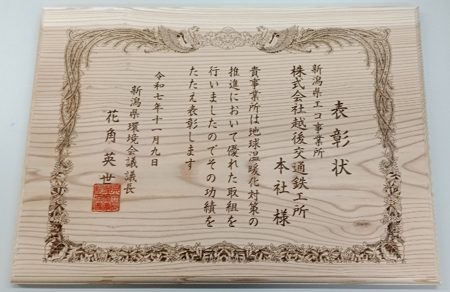 表彰状
新潟県エコ事業所
株式会社越後交通鉄工所
本社 様
貴事業所は地球温暖化対策の
推進において優れた取組を
行いましたのでその功績を
たたえ表彰します
令和七年十一月九日
新潟県環境会議議長
花角英世